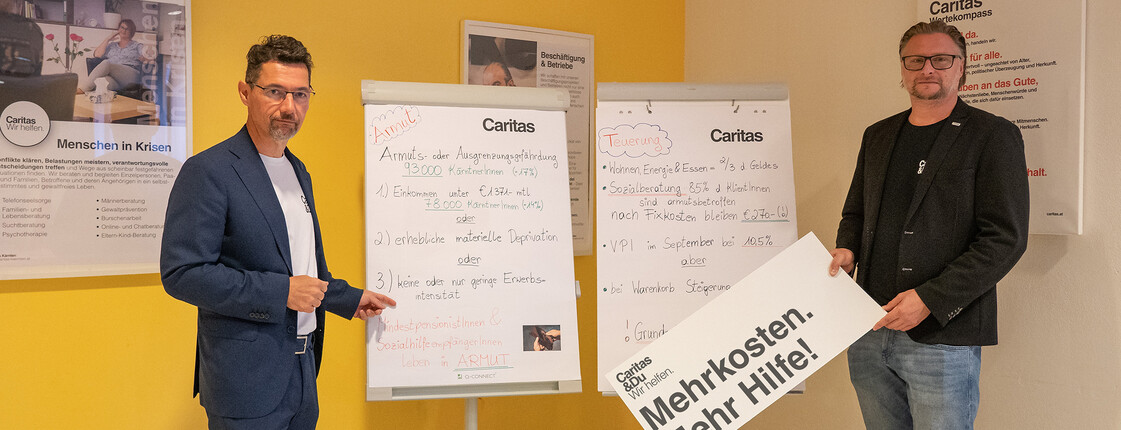 Caritas
Wir helfen.
Menschen in Krisen
Konflikte klären, Belastungen meistern, verantwortungsvolle
entscheidungen treffen und Wege aus scheinbar festgefahrenen
finden. Wir beraten und begleiten Einzelpersonen, Paare
und Familien, Betroffene und deren Angehörigen in ein selbst-
und gewaltfreies Leben.
Telefonseelsorge
Familien- und
Lebensberatung
Suchtberatung
Psychotherapie
• Männerberatung
• Gewaltprävention
• Burschenarbeit
• Online- und Chatberatung
• Eltern-Kind-Beratung
Armut
Caritas
Armuts- oder Ausgrenzungsgefährdung
93000 KärntnerInnen (~17%)
1.) Einkommen unter €1371.- mtl.
78000 KärntnerInnen (~14%)
oder
2.) erhebliche materielle Deprivation
oder
3.) keine oder nur geringe Erwerbs-
intensität
MindestpensionistInnen &
SozialhilfeempfängerInnen
leben in ARMUT
Q-CONNECT
Beschäftigung
& Betriebe
Teuerung
Caritas
• Wohnen, Energie & Essen = 2/3 d Geldes
• Sozialberatung 85% d KlientInnen
sind armutsbetroffen
nach Fixkosten bleiben €270.- (!)
• VPI im September bei 10,5%
aber
• bei Warenkorb Steigerung
! Grund
Caritas
&Du
Wir helfen.
Mehrkosten.
Mehr Hilfe!
Caritas
Wertekompass
da.
handeln wir:
für alle.
ungeachtet von Alter,
politischer Überzeugung und Herkunft.
an das Gute,
Nächstenliebe, Menschenwürde und
die sich dafür einsetzen.
Mitmenschen.
Herkunft.
halt.
caritas.at